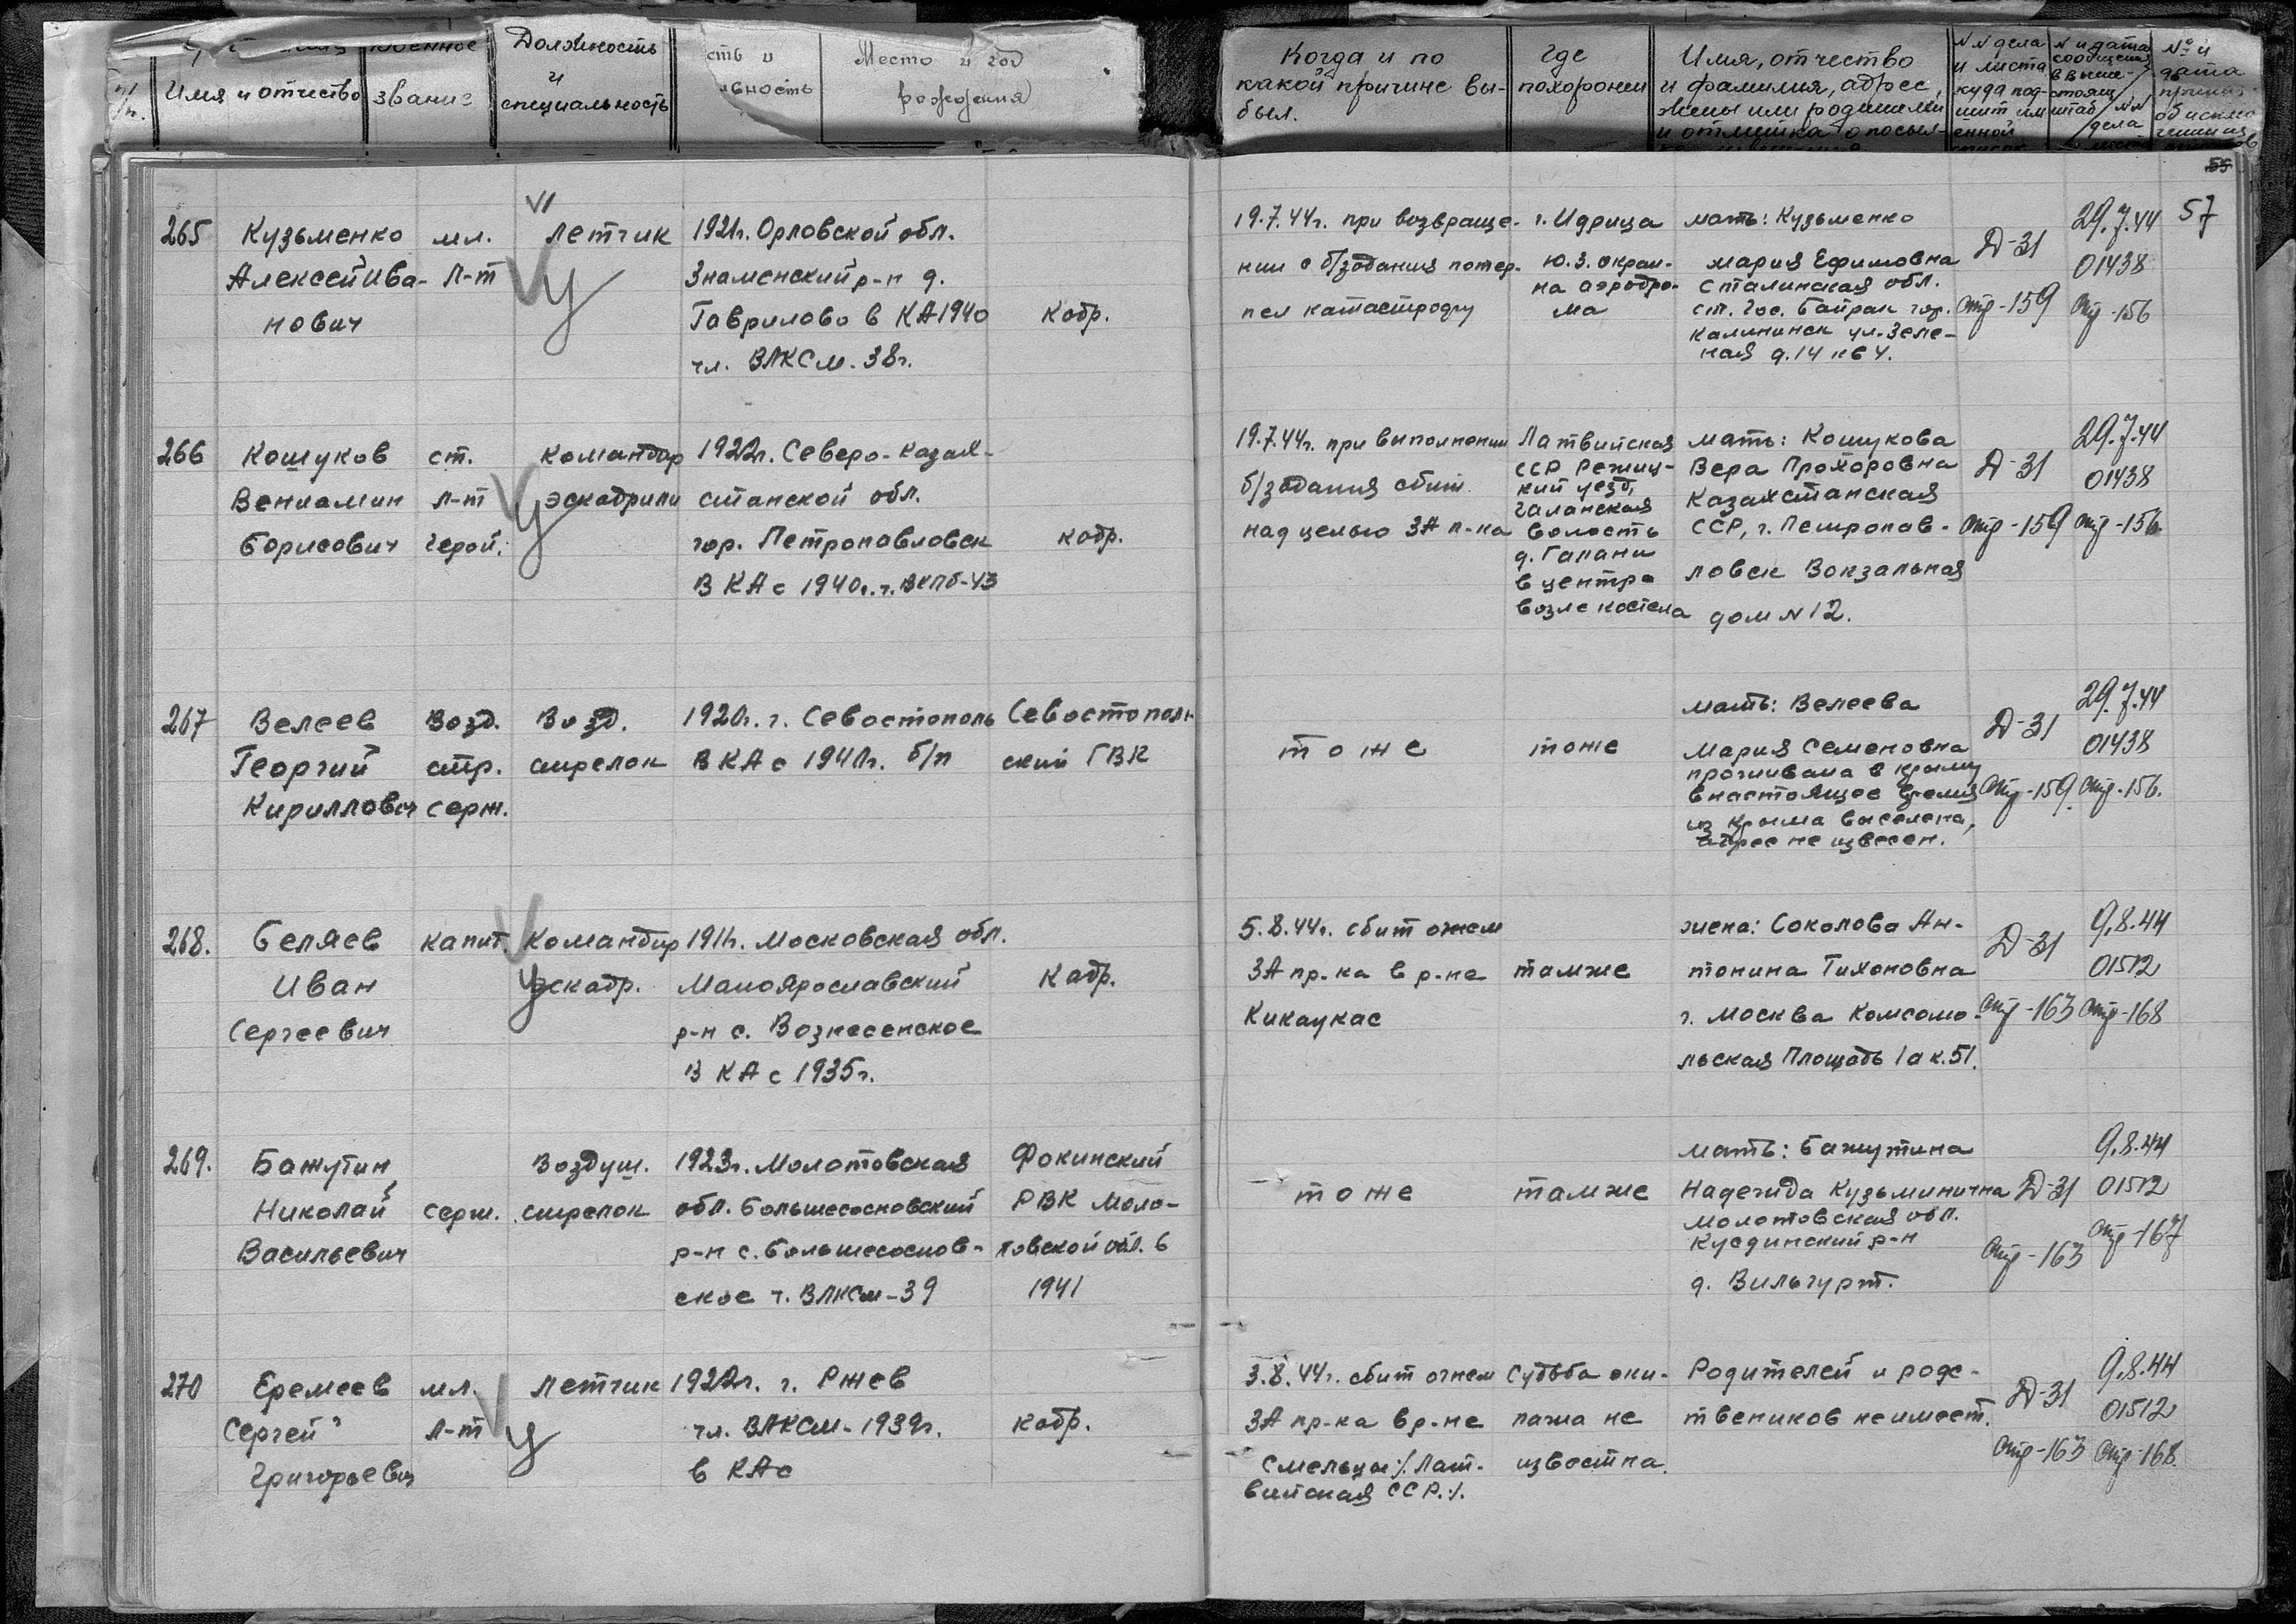 Имя и отчество
звание
Должность
и
специальность
сть и
вность
Место и год
рождения
Когда и по
какой причине вы-
был.
где
похоронен
Имя, отчество
и фамилия, адрес,
жены или родителей
и отметка о посыл-
N N дела
и листа
куда под-
шит им
енной
N и дата
сообщения
в выше-
стоящ.
штаб / N N
дела
№ и
дата
59
57
265
Кузьменко
Алексей Ива-
нович
мл.
л-т
VI
летчик
У
1921г. Орловской обл.
Знаменский р-н д.
Гаврилово в КА 1940
чл. ВЛКСМ. 38г.
Кадр.
19.7.44г. при возвраще-
нии с б/задания потер-
пел катастрофу
г. Идрица
ю.з. окраи-
на аэродро-
ма
мать: Кузьменко
Мария Ефимовна
Сталинская обл.
ст. Гос. Байрак гор.
Калининск ул. Зеле-
ная д. 14 кв 4.
Д-31
стр-159
29.7.44
01438
стр-156
266
Кошуков
Вениамин
Борисович
ст.
л-т
Герой.
Командир
эскадрили
У
1922г. Северо-Казах-
станской обл.
гор. Петропавловск
В КА с 1940г. ч. ВКПб-43
кадр.
19.7.44г. при выполнении
б/задания сбит
над целью ЗА п-ка
Латвийская
ССР Режиц-
кий уезд,
Галанская
волость
д. Галани
в центре
возле костела
мать: Кошукова
Вера Прохоровна
Казахстанская
ССР, г. Петропав-
ловск Вокзальная
дом N 12.
Д-31
стр-159
29.7.44
01438
стр-156
267
Велеев
Георгий
Кириллович
Возд.
стр.
серж.
Возд.
стрелок
1920г. г. Севостополь
В КА с 1940г. б/п
Севостополь
ский ГВК
тоже
тоже
мать: Велеева
Мария Семеновна
проживала в Крыму
в настоящее время
из Крыма выселена,
адрес не извесен.
Д-31
стр-159
29.7.44
01438
стр-156.
268.
Беляев
Иван
Сергеевич
капит.
Командир
эскадр.
У
1911г. Московская обл.
Малоярославский
р-н с. Вознесенское
В КА с 1935г.
Кадр.
5.8.44г. сбит огнем
ЗА пр-ка в р-не
Кикаукас
тамже
жена: Соколова Ан-
тонина Тихоновна
г. Москва Комсомо-
льская Площадь 1а к. 51.
Д-31
стр-163
9.8.44
01512
стр-168
269.
Бажутин
Николай
Васильевич
серж.
Воздуш.
стрелок
1923г. Молотовская
обл. Большесосновский
р-н с. Большесоснов-
ское ч. ВЛКСМ-39
Фокинский
РВК Моло-
товской обл. в
1941
тоже
тамже
мать: Бажутина
Надежда Кузьминична
Молотовская обл.
Куединский р-н
д. Вильгурт.
Д-31
стр-163
9.8.44
01512
стр-167
270
Еремеев
Сергей
Григорьевич
мл.
л-т
летчик
У
1922г. г. Ржев
чл. ВЛКСМ-1939г.
в КА с
кадр.
3.8.44г. сбит огнем
ЗА пр-ка в р-не
Смельцы /. Лат-
вийская ССР./.
Судьба эки-
пажа не
известна.
Родителей и родс-
твеников неимеет.
Д-31
стр-163
9.8.44
01512
стр-168.